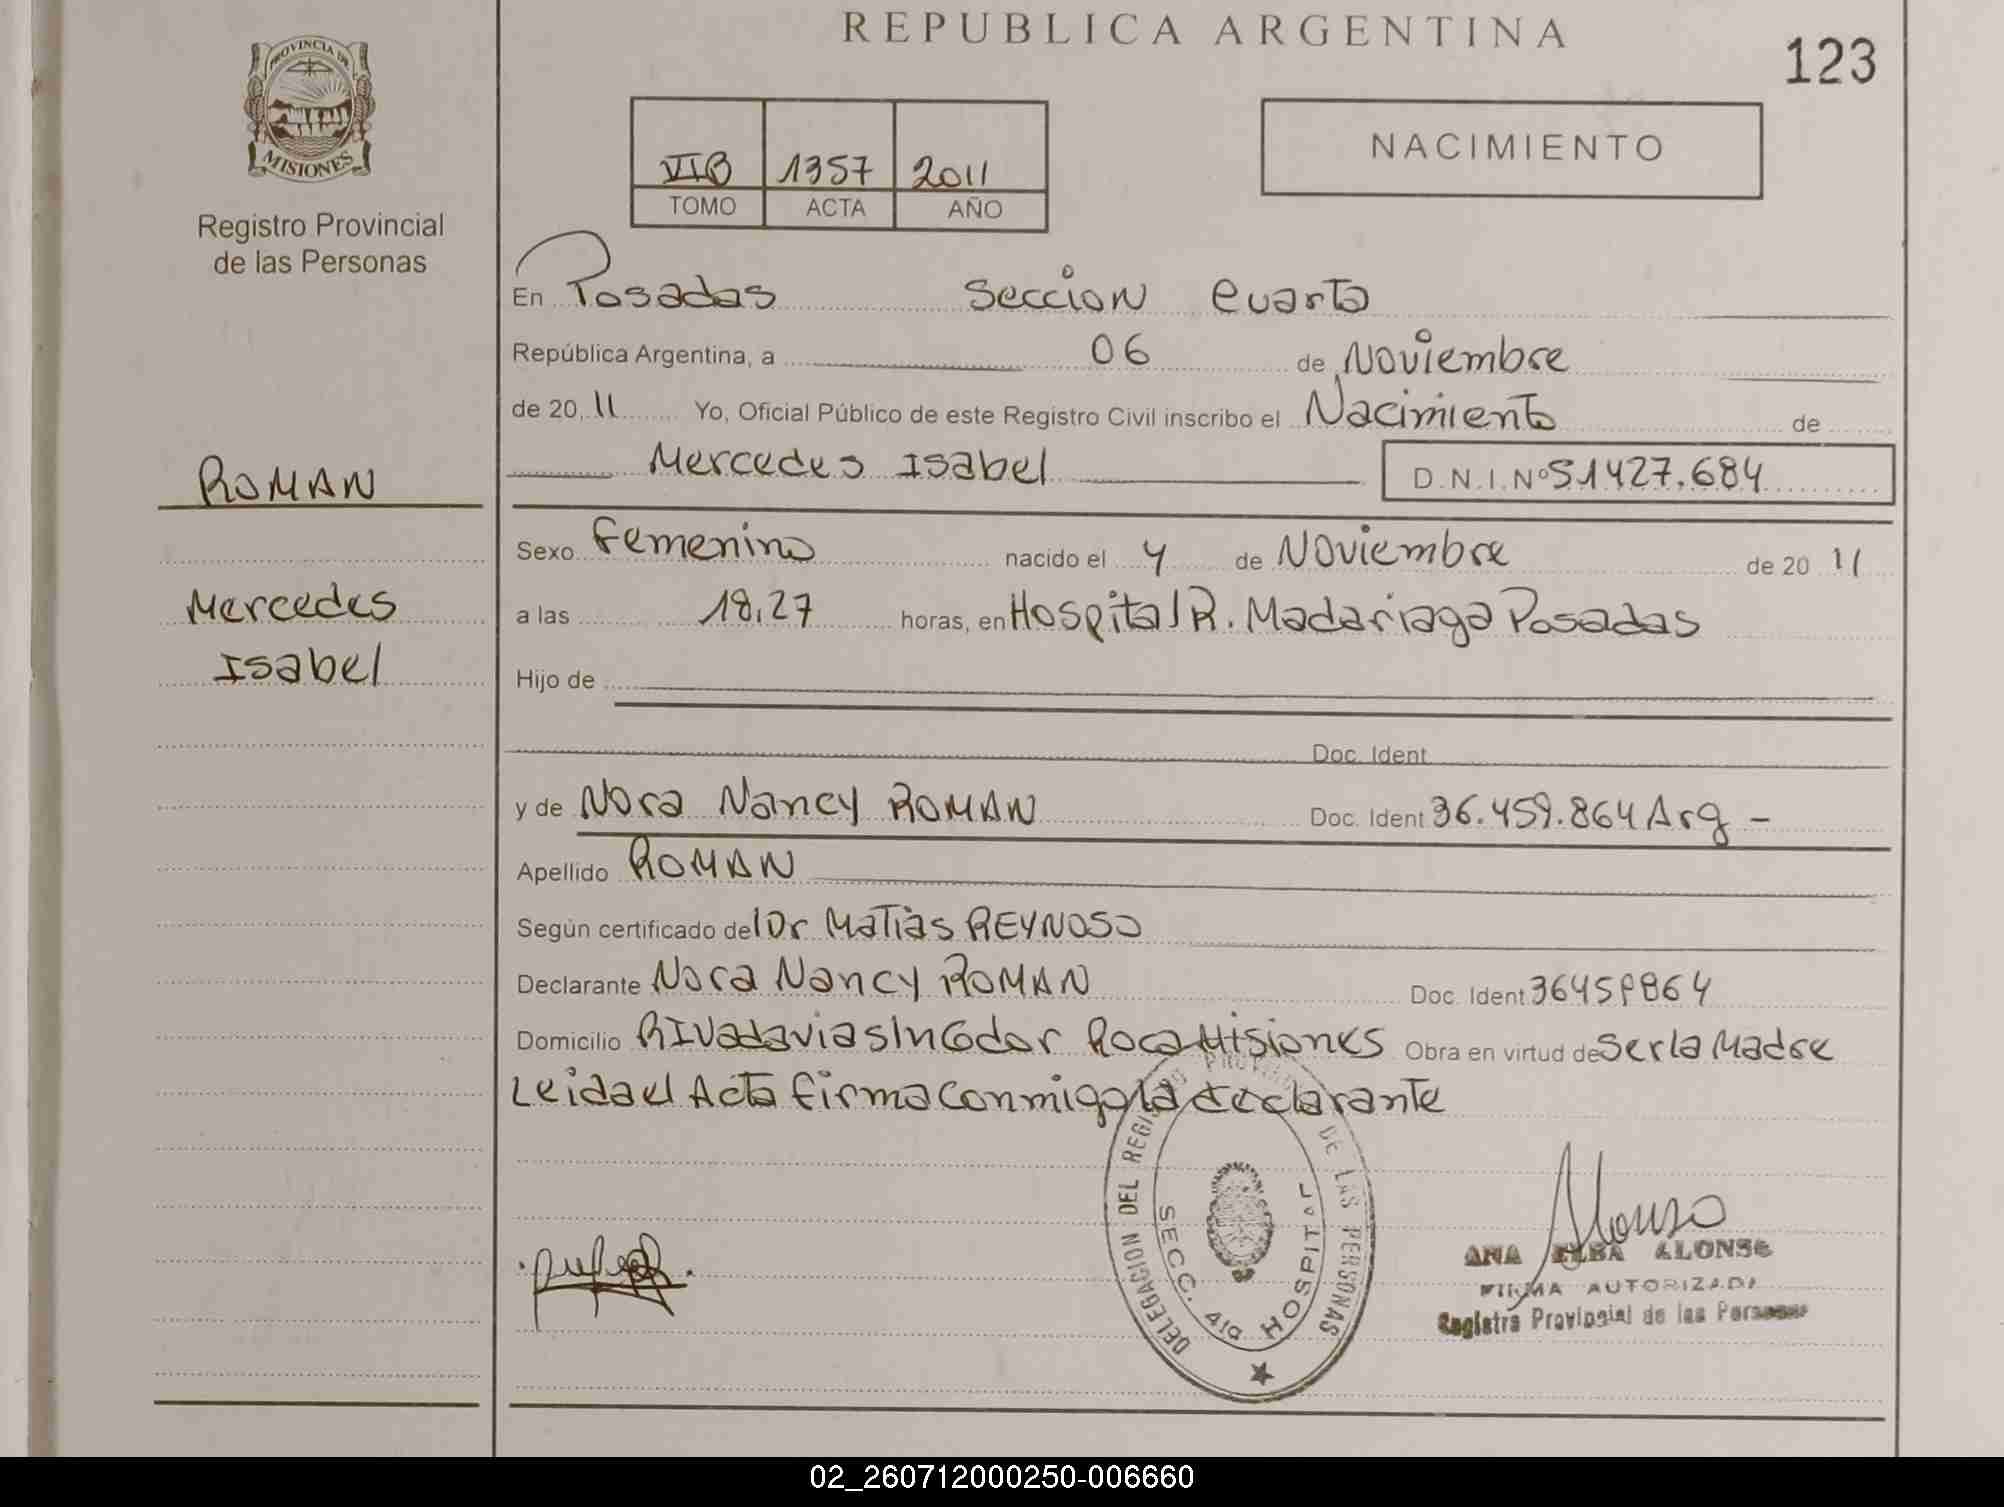 REPUBLICA ARGENTINA
123
PROVINCIA DE
MISIONES
Registro Provincial
de las Personas
VIB 1357 2011
TOMO ACTA AÑO
NACIMIENTO
En Posadas Sección Cuarta
República Argentina, a 06 de Noviembre
de 20 11 Yo, Oficial Público de este Registro Civil inscribo el Nacimiento de
Mercedes Isabel D.N.I. Nº 51427.684
ROMAN
Sexo Femenino nacido el 4 de Noviembre de 20 11
Mercedes
a las 18,27 horas, en Hospital R. Madariaga Posadas
Isabel
Hijo de
Doc. Ident
y de Nora Nancy ROMAN Doc. Ident 36.459.864 Arg -
Apellido ROMAN
Según certificado del Dr Matías REYNOSO
Declarante Nora Nancy ROMAN Doc. Ident 36459864
Domicilio RIVadavia s/n Gdor Roca Misiones Obra en virtud de Ser la Madre
Leida el Acta firma conmigo la declarante
DELEGACION DEL REGISTRO PROVINCIAL DE LAS PERSONAS
SECC. 4ta HOSPITAL
Alonso
ANA ELBA ALONSO
FIRMA AUTORIZADA
Registro Provincial de las Personas
02_260712000250-006660